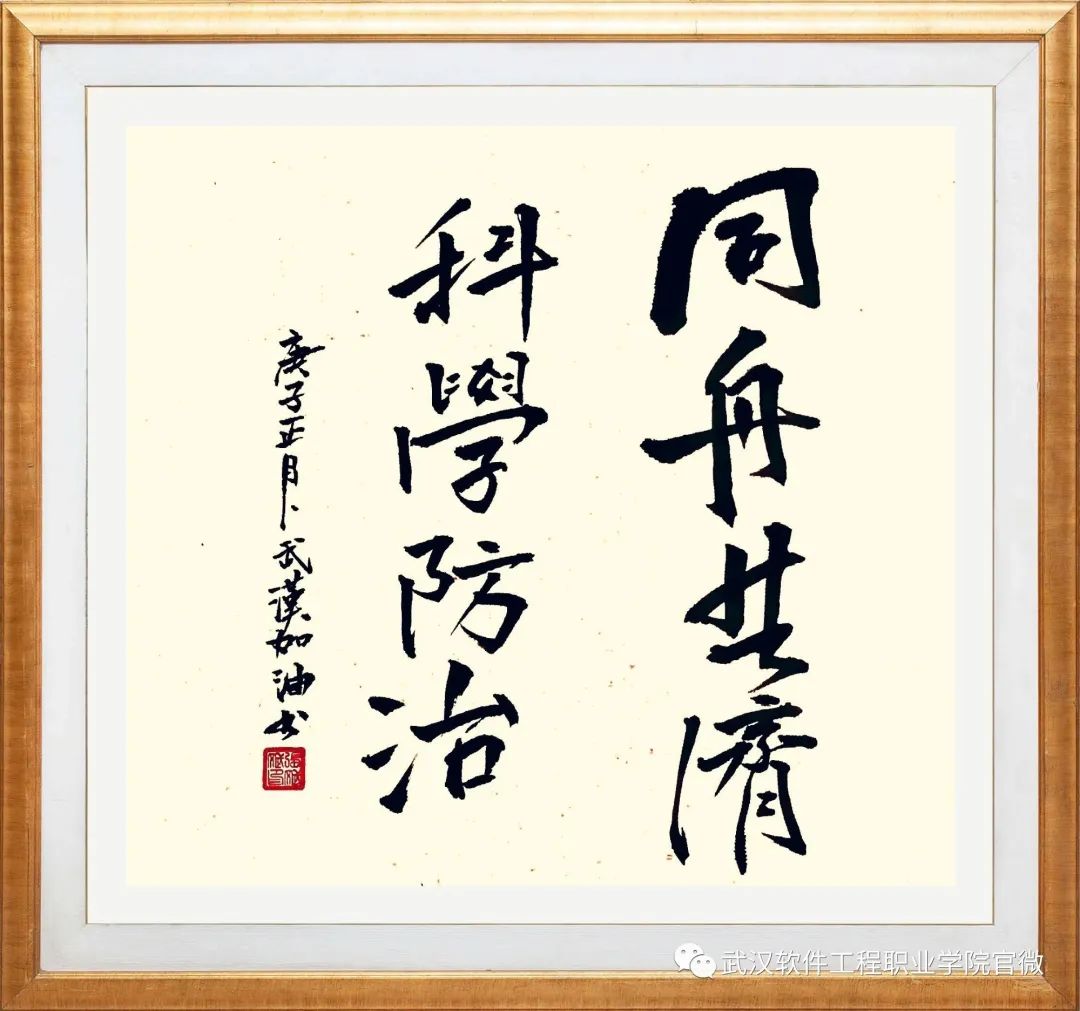 同舟共濟
科學防治
庚子正月卜武漢加油書
武汉软件工程职业学院官微